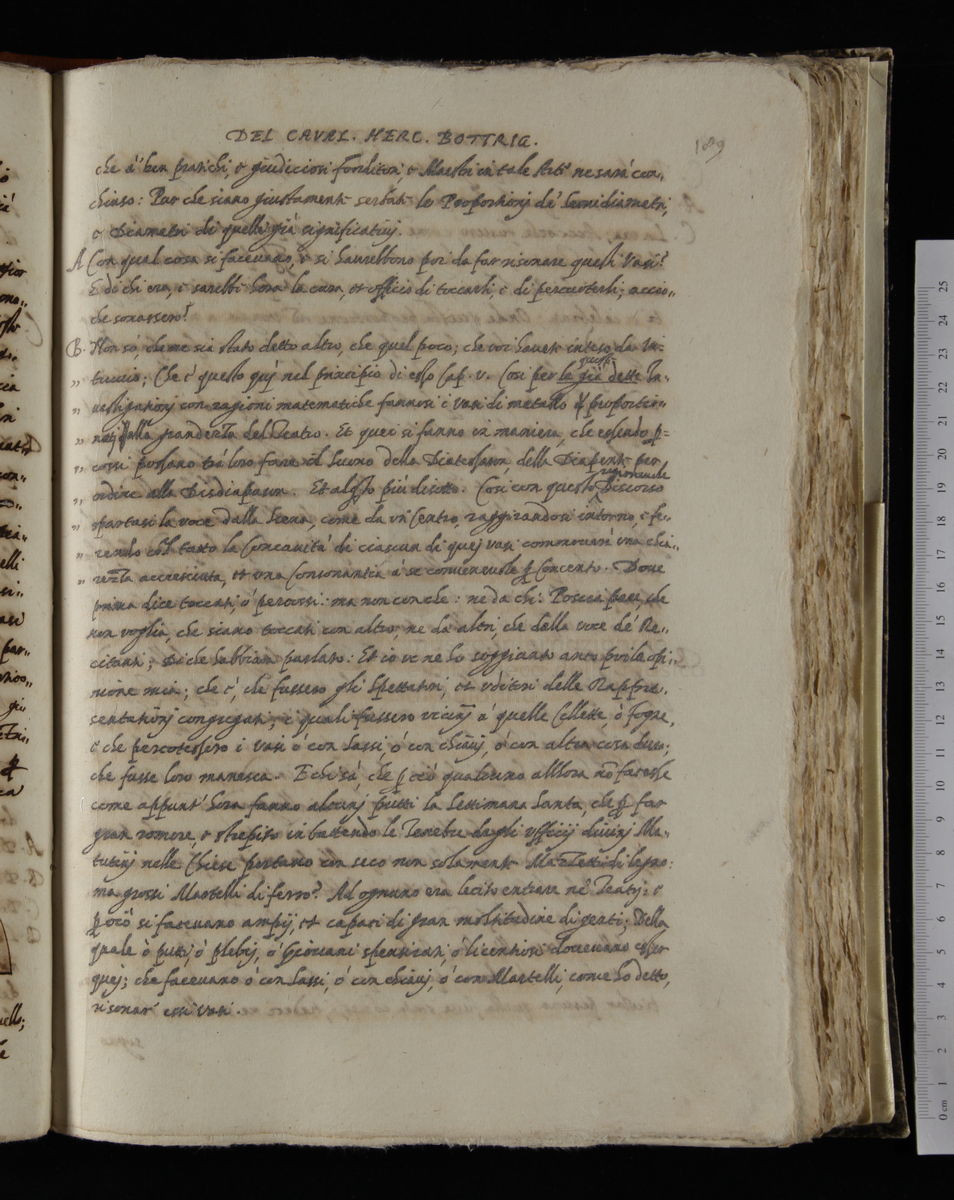 DEL CAVAL. HERC. BOTTRIG.
1089
che à ben pratichi, et giudiciosi fonditori, et Maestri in tale Arte ne sarà con,,
chiuso: Pur che siano giustamente serbate le Proportionj de' Semidiametri,
o Diametri di quelli già significativj.
A Con qual cosa si facevano, e si haurebbono poi da far risonare quelli Vasi?
E di chi era, e sarebbe hora la cura, et officio di toccarli, e di percuoterli; accio,,
che sonassero?
B. Non so, che me sia stato detto altro, che quel poco; che voi havete inteso da Vi=
,, truuio; Che è questo quj nel principio di esso Cap. v. Cosi per le già dette In,,
,, uestigationj con ragioni matematiche fannosi i Vasi di metallo proportio,,
,, natj alla grandezza del Teatro. Et quei si fanno in maniera, che essendo p=
,, cossi possano trà loro fare il suono della Diatessaron della Diapente per
,, ordine alla Disdiapason. Cosi con questo ragioneuole Discorso
,, spartasi la voce dalla Scena, come da un Centro, raggirandosi intorno, e fe,,
,, rendo col tatto la Concauità di ciascun di quej vasi commouerà una chia,,
,, rezza accresciuta, et una Consonantia à se conueneuole Concento. Doue
prima dice toccati, ò percossi: ma non con che: ne da chi. Poscia pare, che
non voglia, che siano toccati con altro, ne da altri, che dalla voce de' Re,,
citanti; Di che habbiam parlato: Et io ve ne ho soggiunto anco poi la opi,,
nione mia; che è, che fussero gli Spettatori, et uditori delle Rappre,
sentationj congregati; i quali fussero vicinj à quelle Cellette, ò Fogne,
e che percotessero i Vasi ò con sassi ò con chiauj, ò con altra cosa dura;
che fusse loro manesca. E chi sà, che qualcuno allhora nõ facesse
come appunt' hora fanno alcunj putti la Settimana Santa, che far
gran romore, et strepito in battendo le Tenebre da gli vfficij diuinj Ma,
tutinj nelle Chiese portano con seco non solamente Mazzetti di legno:
ma grossi Martelli di ferro? Ad ognuno era lecito entrare ne' Teatrj: e
si faceuano ampij, et capaci di gran moltitudine di genti; Della
quale ò putti ò plebij, ò Giovani spensirati, ò licentiosi doueuano esser
quej; che faceuano ò con sassi, ò con chiauj, ò con Martelli, come ho detto,
risonar essi Vasi.